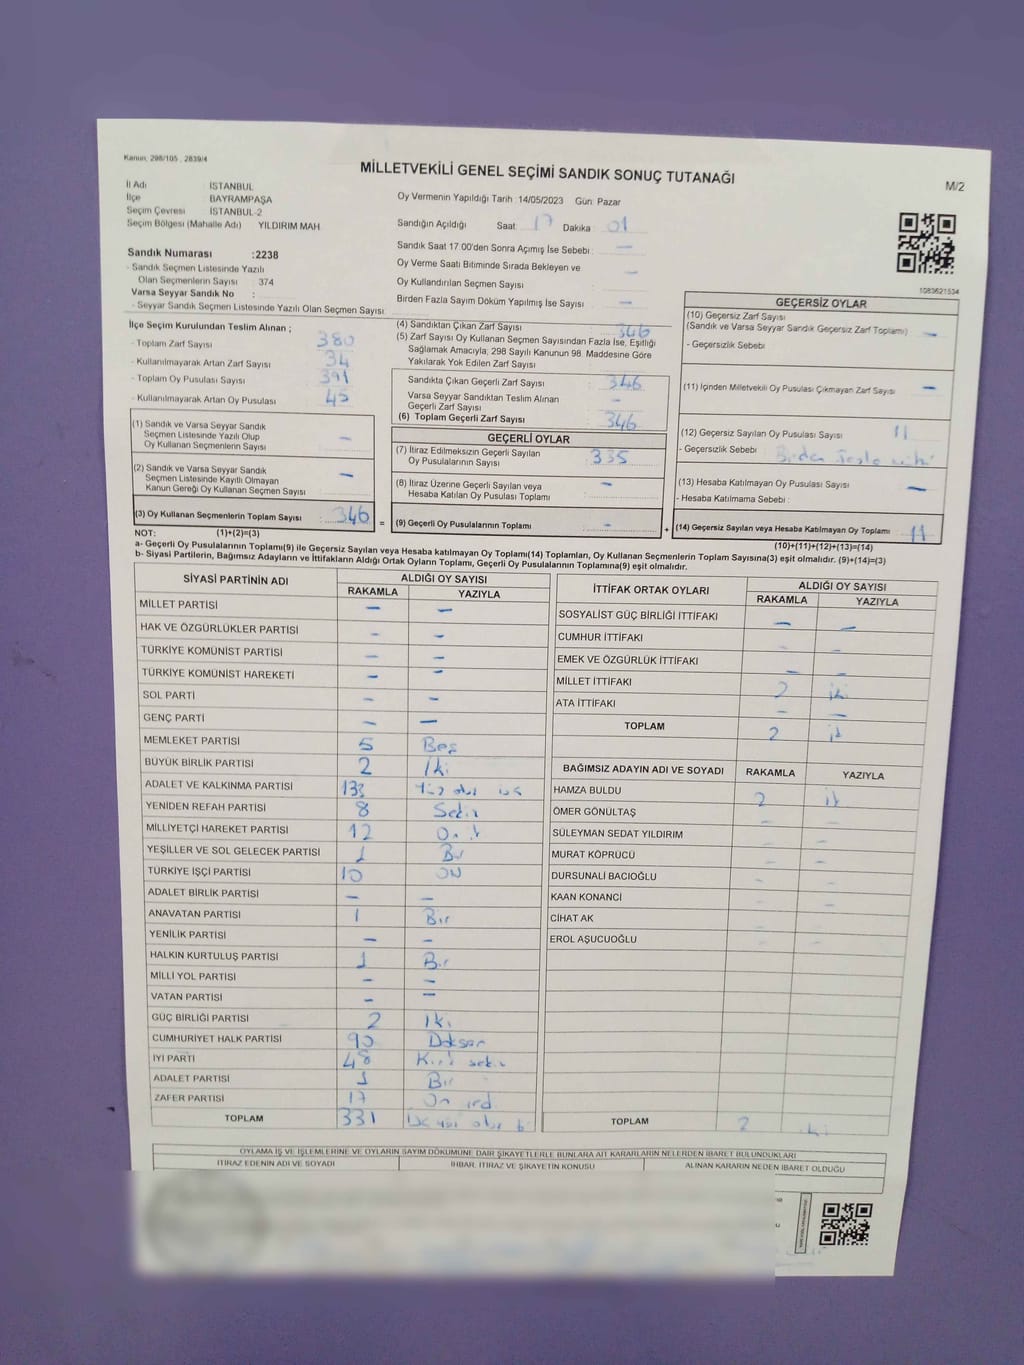 Kanun, 298/105 , 2839/4
MİLLETVEKİLİ GENEL SEÇİMİ SANDIK SONUÇ TUTANAĞI
M/2
İl Adı İSTANBUL
İlçe BAYRAMPAŞA
Seçim Çevresi İSTANBUL-2
Seçim Bölgesi (Mahalle Adı) YILDIRIM MAH
Sandık Numarası :2238
- Sandık Seçmen Listesinde Yazılı
Olan Seçmenlerin Sayısı : 374
Varsa Seyyar Sandık No :
- Seyyar Sandık Seçmen Listesinde Yazılı Olan Seçmen Sayısı:
Oy Vermenin Yapıldığı Tarih : 14/05/2023 Gün: Pazar
Sandığın Açıldığı Saat 17 Dakika : 01
Sandık Saat 17:00'den Sonra Açımış İse Sebebi : —
Oy Verme Saati Bitiminde Sırada Bekleyen ve
Oy Kullandırılan Seçmen Sayısı : —
Birden Fazla Sayım Döküm Yapılmış İse Sayısı : —
1083621534
İlçe Seçim Kurulundan Teslim Alınan ;
- Toplam Zarf Sayısı : 380
- Kullanılmayarak Artan Zarf Sayısı : 34
- Toplam Oy Pusulası Sayısı : 391
- Kullanılmayarak Artan Oy Pusulası : 45
(1) Sandık ve Varsa Seyyar Sandık
Seçmen Listesinde Yazılı Olup
Oy Kullanan Seçmenlerin Sayısı : —
(2) Sandık ve Varsa Seyyar Sandık
Seçmen Listesinde Kayıtlı Olmayan
Kanun Gereği Oy Kullanan Seçmen Sayısı : —
(3) Oy Kullanan Seçmenlerin Toplam Sayısı : 346 =
(1)+(2)=(3)
(4) Sandıktan Çıkan Zarf Sayısı : 346
(5) Zarf Sayısı Oy Kullanan Seçmen Sayısından Fazla İse, Eşitliği
Sağlamak Amacıyla, 298 Sayılı Kanunun 98. Maddesine Göre
Yakılarak Yok Edilen Zarf Sayısı :
Sandıkta Çıkan Geçerli Zarf Sayısı : 346
Varsa Seyyar Sandıktan Teslim Alınan
Geçerli Zarf Sayısı : —
(6) Toplam Geçerli Zarf Sayısı : 346
GEÇERLİ OYLAR
(7) İtiraz Edilmeksizin Geçerli Sayılan
Oy Pusulalarının Sayısı : 335
(8) İtiraz Üzerine Geçerli Sayılan veya
Hesaba Katılan Oy Pusulası Toplamı : —
(9) Geçerli Oy Pusulalarının Toplamı : — +
GEÇERSİZ OYLAR
(10) Geçersiz Zarf Sayısı
(Sandık ve Varsa Seyyar Sandık Geçersiz Zarf Toplamı) : —
- Geçersizlik Sebebi :
(11) İçinden Milletvekili Oy Pusulası Çıkmayan Zarf Sayısı : —
(12) Geçersiz Sayılan Oy Pusulası Sayısı : 11
- Geçersizlik Sebebi : Birden
(13) Hesaba Katılmayan Oy Pusulası Sayısı : —
- Hesaba Katılmama Sebebi :
(14) Geçersiz Sayılan veya Hesaba Katılmayan Oy Toplamı : 11
(10)+(11)+(12)+(13)=(14)
NOT:
a- Geçerli Oy Pusulalarının Toplamı(9) ile Geçersiz Sayılan veya Hesaba katılmayan Oy Toplamı(14) Toplamları, Oy Kullanan Seçmenlerin Toplam Sayısına(3) eşit olmalıdır. (9)+(14)=(3)
b- Siyasi Partilerin, Bağımsız Adayların ve İttifakların Aldığı Ortak Oyların Toplamı, Geçerli Oy Pusulalarının Toplamına(9) eşit olmalıdır.
SİYASİ PARTİNİN ADI ALDIĞI OY SAYISI
RAKAMLA YAZIYLA
MİLLET PARTİSİ — —
HAK VE ÖZGÜRLÜKLER PARTİSİ — —
TÜRKİYE KOMÜNİST PARTİSİ — —
TÜRKİYE KOMÜNİST HAREKETİ — —
SOL PARTİ — —
GENÇ PARTİ — —
MEMLEKET PARTİSİ 5 Beş
BÜYÜK BİRLİK PARTİSİ 2 İki
ADALET VE KALKINMA PARTİSİ 133
YENİDEN REFAH PARTİSİ 8 Sekiz
MİLLİYETÇİ HAREKET PARTİSİ 12
YEŞİLLER VE SOL GELECEK PARTİSİ 1 Bir
TÜRKİYE İŞÇİ PARTİSİ 10 ON
ADALET BİRLİK PARTİSİ — —
ANAVATAN PARTİSİ 1 Bir
YENİLİK PARTİSİ — —
HALKIN KURTULUŞ PARTİSİ 1 Bir
MİLLİ YOL PARTİSİ — —
VATAN PARTİSİ — —
GÜÇ BİRLİĞİ PARTİSİ 2 İki
CUMHURİYET HALK PARTİSİ 90 Doksan
İYİ PARTİ 48 Kırk sekiz
ADALET PARTİSİ 1 Bir
ZAFER PARTİSİ 17 On
TOPLAM 331
İTTİFAK ORTAK OYLARI ALDIĞI OY SAYISI
RAKAMLA YAZIYLA
SOSYALİST GÜÇ BİRLİĞİ İTTİFAKI — —
CUMHUR İTTİFAKI — —
EMEK VE ÖZGÜRLÜK İTTİFAKI — —
MİLLET İTTİFAKI 2 iki
ATA İTTİFAKI — —
TOPLAM 2
BAĞIMSIZ ADAYIN ADI VE SOYADI RAKAMLA YAZIYLA
HAMZA BULDU 2
ÖMER GÖNÜLTAŞ — —
SÜLEYMAN SEDAT YILDIRIM — —
MURAT KÖPRÜCÜ — —
DURSUNALİ BACIOĞLU — —
KAAN KONANCİ — —
CİHAT AK — —
EROL AŞUCUOĞLU — —
TOPLAM 2 iki
OYLAMA İŞ VE İŞLEMLERİNE VE OYLARIN SAYIM DÖKÜMÜNE DAİR ŞİKAYETLERLE BUNLARA AİT KARARLARIN NELERDEN İBARET BULUNDUKLARI
İTİRAZ EDENİN ADI VE SOYADI İHBAR, İTİRAZ VE ŞİKAYETİN KONUSU ALINAN KARARIN NEDEN İBARET OLDUĞU